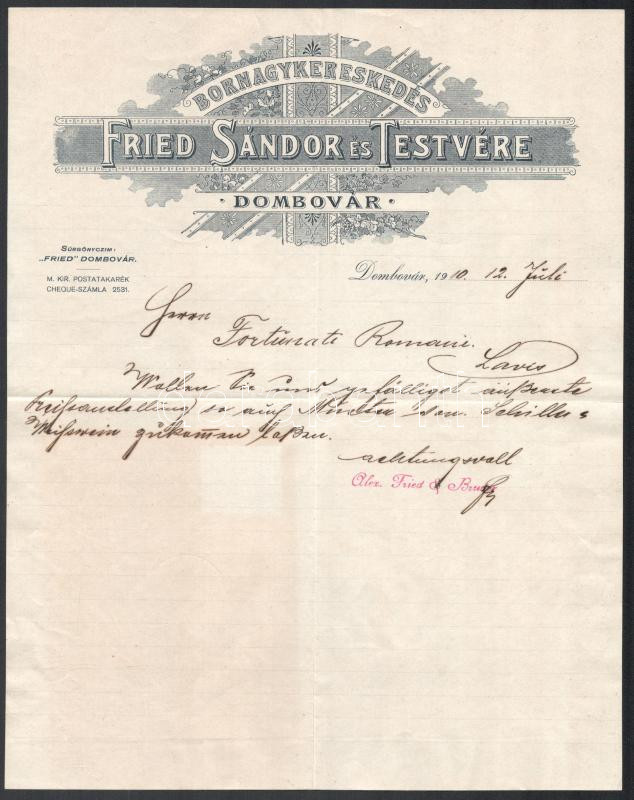 BORNAGYKERESKEDÉS
FRIED SÁNDOR ÉS TESTVÉRE
· DOMBOVÁR ·
SÜRGÖNYCZIM:
„FRIED" DOMBOVÁR.
M. KIR. POSTATAKARÉK
CHEQUE-SZÁMLA 2531.
Dombovár, 1910. 12. Juli
Herrn
Fortunati Romani.
Lavis
Wollen Sie uns gefälligst äußerste
so auch Muster von Schiller =
Weißwein zukommen laßen.
achtungsvoll
Alex. Fried & Bruder